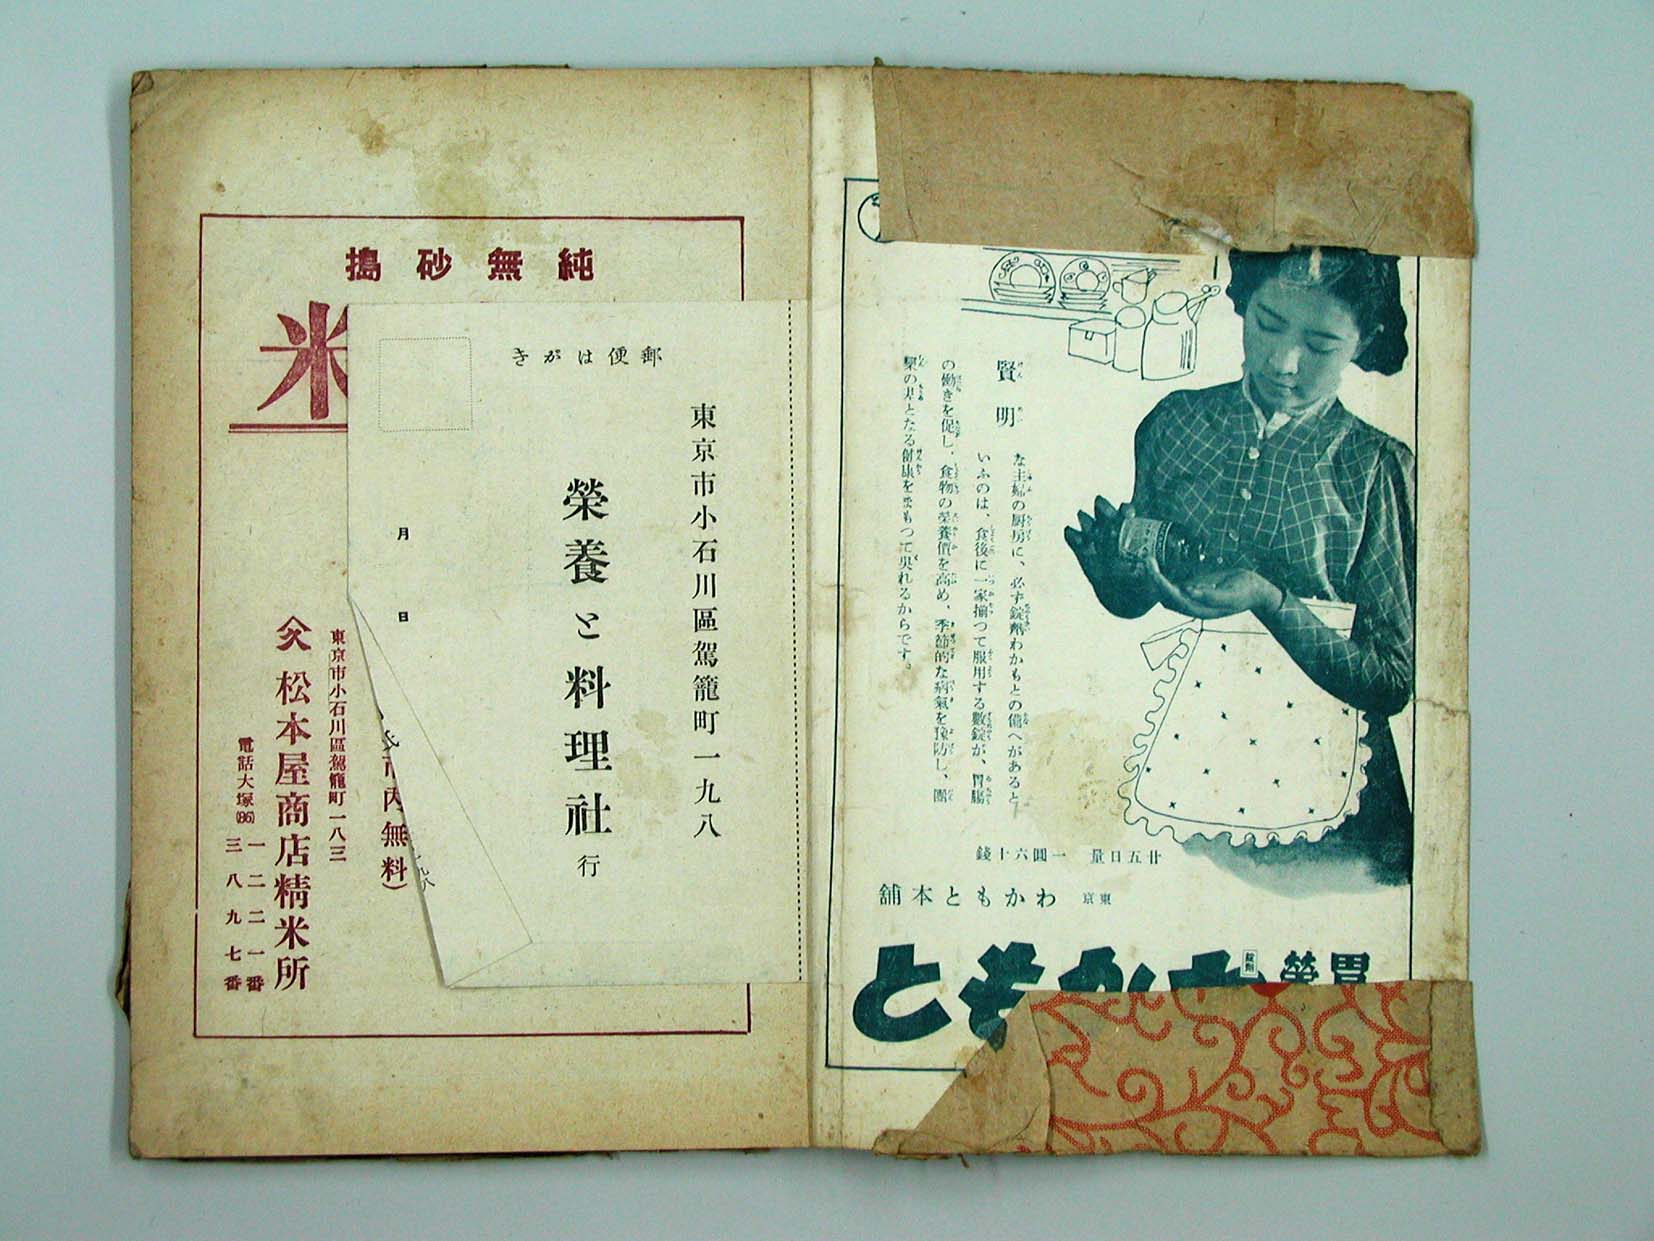 純無砂搗
米
東京市小石川區駕籠町一八三
松本屋商店精米所
電話大塚(86)
一二二一番
三八九七番
市内無料)
郵便はがき
東京市小石川區駕籠町一九八
榮養と料理社行
月 日
賢明
な主婦の厨房に、必ず錠劑わかもとの備へがあると
いふのは、食後に一家揃つて服用する數錠が、胃腸
の働きを促し、食物の榮養價を高め、季節的な病氣を豫防し、團
欒の末となる健康をもつて吳れるからです。
廿五日量 一圓六十錢
東京 わかもと本舖
胃榮
錠劑
わかもと